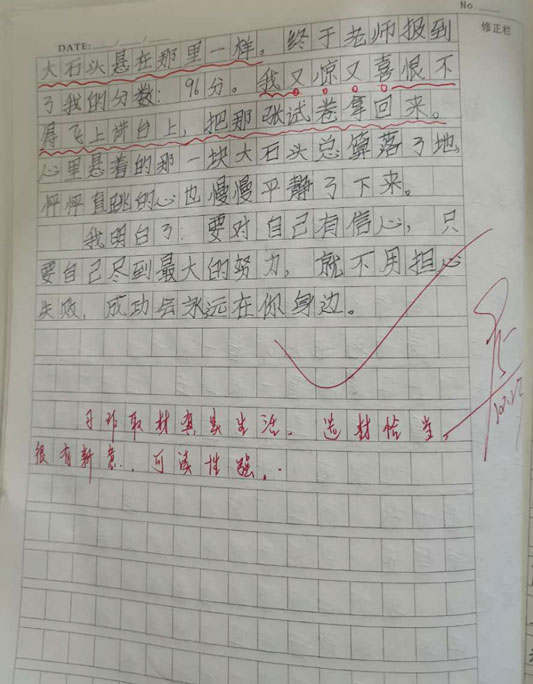 No.
修正栏
DATE: / /
大石头悬在那里一样。终于老师报到
了我的分数：96分。我又惊又喜恨不
得飞上讲台上，把那张试卷拿回来。
心里悬着的那一块大石头总算落了地，
怦怦直跳的心也慢慢平静了下来。
我明白了：要对自己有信心，只
要自己尽到最大的努力，就不用担心
失败，成功会永远在你身边。
习作取材真实生活。选材恰当，
很有新意，可读性强。